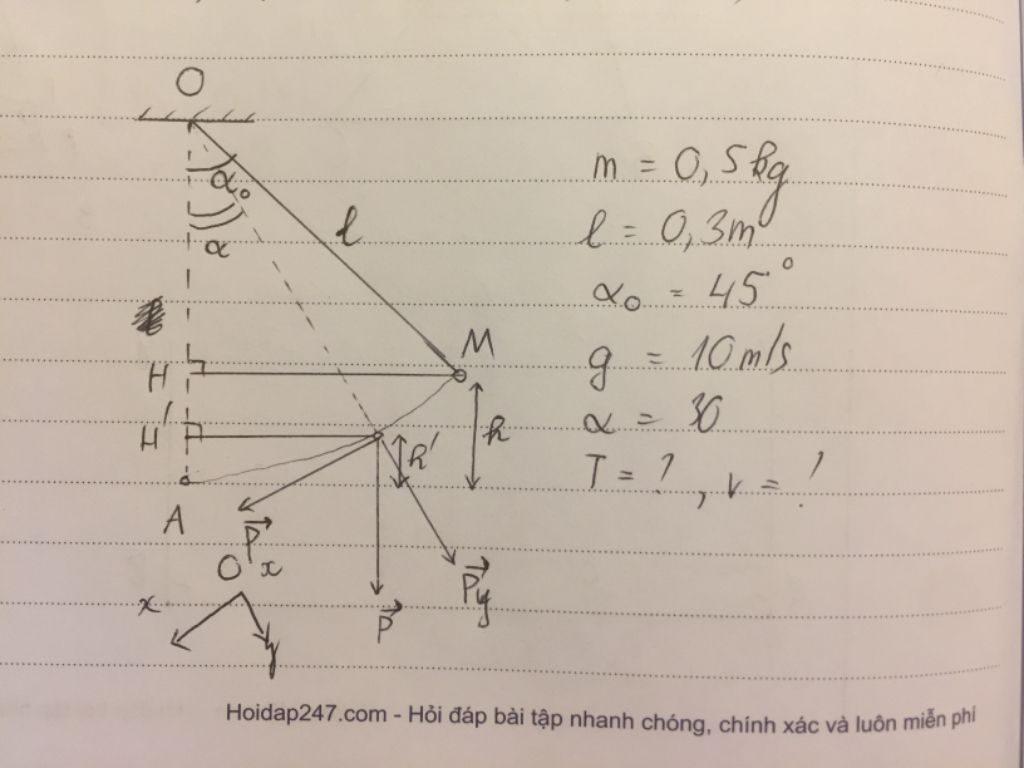 O
α₀
α
l
M
H
H'
h
h'
A
Pₓ
O
x
y
P
Py
m = 0,5kg
l = 0,3m
α₀ = 45°
g = 10m/s
α = 30
T = ? , v = ?
Hoidap247.com - Hỏi đáp bài tập nhanh chóng, chính xác và luôn miễn phí